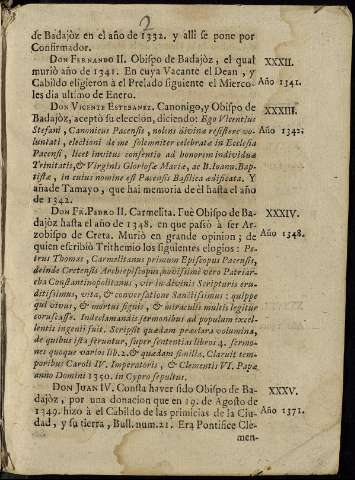 2
de Badajòz en el año de 1332. y alli se pone por
Confirmador.
DON FERNANDO II. Obispo de Badajòz, el qual
murió año de 1341. En cuya Vacante el Dean, y
Cabildo eligieron à el Prelado siguiente el Miercoles
dia ultimo de Enero.
XXXII.
Año 1341.
DON VICENTE ESTEBANEZ. Canonigo, y Obispo de
Badajòz, aceptò su eleccion, diciendo: Ego Vicentius
Stefani, Canonicus Pacensis, nolens divinæ resistere voluntati,
electioni de me solemniter celebratæ in Ecclesia
Pacensi, licet invitus consentio ad honorem individuæ
Trinitatis, & Virginis Gloriosæ Mariæ, ac B. Ioann. Baptistæ,
in cuius nomine est Pacensis Basilica ædificata. Y
añade Tamayo, que hai memoria de èl hasta el año
de 1342.
XXXIII.
Año 1342.
DON FR. PEDRO II. Carmelita. Fuè Obispo de Badajòz
hasta el año de 1348. en que passò à ser Arzobispo
de Creta. Muriò en grande opinion; de
quien escribiò Trithemio los siguientes elogios: Petrus
Thomas, Carmelitanus primum Episcopus Pacensis,
deinde Cretensis Archiepiscopus, novissimè vero Patriarcha
Constantinopolitanus, vir in divinis Scripturis eruditissimus,
vita, & conversatione Sanctissimus: quippe
qui vivus, & mortus signis, & miraculis multis legitur
coruscasse. In declamandis sermonibus ad populum excellentis
ingenij fuit. Scripsit quædam præclara volumina,
de quibus ista feruntur, super sententias libros 4. sermones
quoque varios lib. 2. & quædam similia. Claruit temporibus
Caroli IV. Imperatoris, & Clementis VI. Papæ
anno Domini 1350. in Cypro sepultus.
XXXIV.
Año 1348.
DON JUAN IV. Consta haver sido Obispo de Badajòz,
por una donacion que en 19. de Agosto de
1349. hizo à el Cabildo de las primicias de la Ciudad,
y su tierra, Bull. num. 21. Era Pontifice Clemen-
XXXV.
Año 1371.